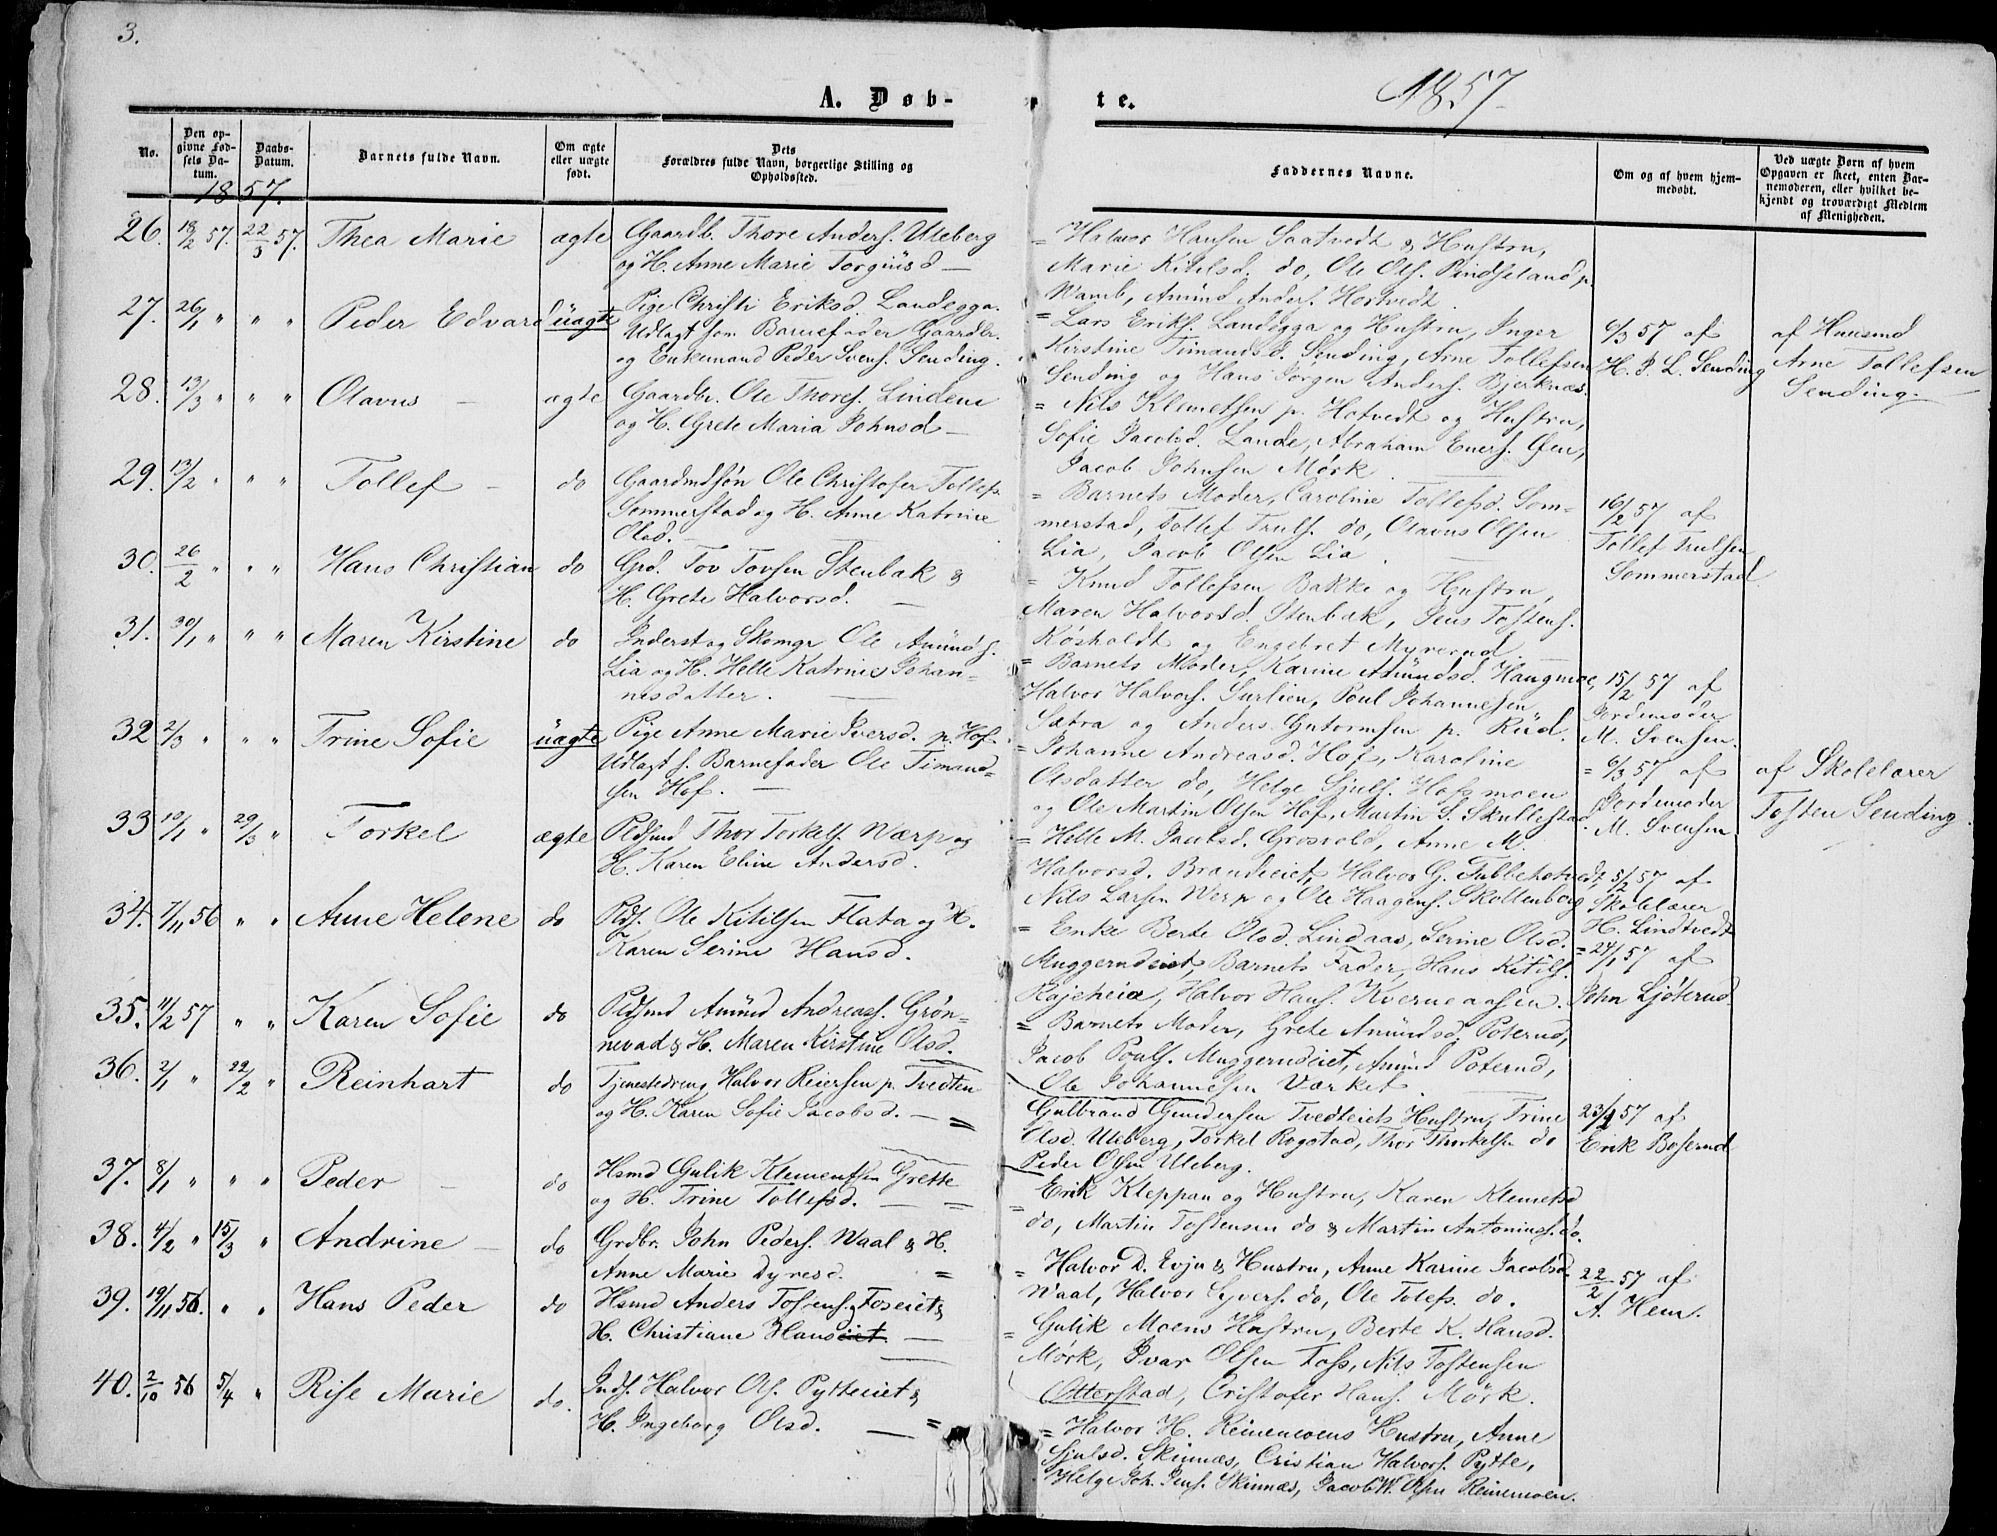 3.
A. Døb-
te.
1857
No.
Den op-
givne Fød-
sels Da-
tum.
Daabs-
Datum.
Barnets fulde Navn.
Om ægte
eller uægte
født.
Dets
Forældres fulde Navn, borgerlige Stilling og
Opholdssted.
Faddernes Navne.
Om og af hvem hjem-
medøbt.
Ved uægte Børn af hvem
Opgaven er skeet, enten Bar-
nemoderen, eller hvilket be-
kjendt og troværdigt Medlem
af Menigheden.
1857.
26. 18/2 57. 22/3 57. Thea Marie ægte Gaardb. Thore Anders. Uleberg
og H. Anne Marie Torgiüsd —
= Halvor Hansen Saatvedt & Hustru,
Marie Kitilsd. do, Ole Ols. Pindseland p.
Wamb, Amünd Anders. Hortvedt.
27. 26/1 " " " Peder Edvard üægte Pige Christi Eriksd. Landegga.
Udlagt som Barnefader Gaardbr.
og Enkemand Peder Svens. Sending.
= Lars Eriks. Landegga og Hustru, Inger
Kirstine Timandsd. Sending, Arne Tollefsen
Sending og Hans Jørgen Anders. Bjerknæs.
6/3 57 af
H. P. L. Sending
af Huusmd
Arne Tollefsen
Sending.
28. 13/3 " " " Olavus — ægte Gaardbr. Ole Thores. Lindem
og H. Grete Maria Johnsd —
= Nils Klemetsen p. Hotvedt og Hustru,
Sofie Jacobsd. Lande, Abraham Eners. Øen,
Jacob Johnsen Mørk.
29. 13/2 " " " Tollef — do Gaardmdsøn Ole Christofer Tollefs.
Sommerstad og H. Anne Katrine
Olsd. —
= Barnets Moder, Caroline Tollefsd. Som-
merstad, Tollef Truls. do, Olavus Olsen
Lia, Jacob Olsen Lia.
16/2 57 af
Tollef Trulsen
Sommerstad
30. 26/2 " " " Hans Christian do Grd. Tov Tovsen Stenbak &
H. Grete Halvorsd. —
= Knud Tollefsen Bakke og Hustru,
Maren Halvorsd. Stenbak, Jens Tostens.
Kosholdt og Engebret Myrerud.
31. 30/1 " " " Maren Kirstine do Inderst og Skomgr Ole Amünds.
Lia og H. Helle Katrine Johan-
nesdatter. —
= Barnets Moder, Karine Amündsd. Haugmoe,
Halvor Halvors. Surlien, Poul Johannesen
Sætra og Anders Gutormsen p. Rüd.
15/2 57 af
Jordemoder
M. Svensen.
32 2/3 " " " Trine Sofie üægte Pige Anne Marie Iversd. p. Hof.
Udlagt s. Barnefader Ole Timand-
sen Hof. —
= Johanne Andreasd. Hof, Karoline
Olsdatter do, Helge Sjuls. Hofsmoen
og Ole Martin Olsen Hof, Martin S. Skullestad.
= 6/3 57 af
Jordemoder
M. Svensen
af Skolelærer
Tosten Sending.
33 10/1 " 29/3 " Torkel ægte Pldsmd Thor Torkels. Wærp og
H. Karen Eline Andersd.
= Helle M. Jacobsd. Grosvold, Anne M.
Halvorsd. Brandeiet, Halvor G. Tubbehotvedt,
Nils Larsen Werp og Ole Haagens. Skollenborg
5/2 57 af
Skolelærer
H. Lindtvedt
34. 7/11 56 " " Anne Helene do Plds. Ole Kitilsen Flata og H.
Karen Serine Hansd.
= Enke Berte Olsd. Lindaas, Serine Olsd.
Muggerudeiet, Barnets Fader, Hans Kitils.
Kajeheia, Halvor Hans. Kverneaasen.
= 24/1 57 af
John Ljøterud
35. 11/2 57 " " Karen Sofie do Pldsmd Amünd Andreass. Grøn-
nevad & H. Maren Kirstine Olsd.
= Barnets Moder, Grete Amündsd. Poterud,
Jacob Pouls. Muggerudeiet, Amünd Poterud,
Ole Johannesen Værket.
36. 2/1 " 22/2 " Reinhart do Tjenestedreng Halvor Reiersen p. Tvedten
og H. Karen Sofie Jacobsd. — =
Gulbrand Gundersen Tvedteiets Hustru, Trine
Olsd. Uleberg, Torkel Rogstad, Thor Thorkelsen do
Peder Olsen Uleberg.
23/1 57 af
Erik Boserud
37. 8/1 " " " Peder — do Hsmd Gulik Klementsen Grette
og H. Trine Tollefsd. — =
= Erik Kleppan og Hustru, Karen Klemetsd
do, Martin Tostensen do & Martin Antonius. do.
38. 4/2 " 15/3 " Andrine — do Grdbr. John Peders. Waal & H.
Anne Marie Dyresd. =
= Halvor D. Evju & Hustru, Anne Karine Jacobsd.
Waal, Halvor Syvers. do, Ole Tolefs. do.
22/2 57 af
A. Hem.
39. 19/11 56. " " Hans Peder do Hsmd Anders Tostens. Foseiet &
H. Christiane Hanseiet —
= Gulik Moens Hustru, Berte K. Hansd.
Mørk, Ivar Olsen Foss, Nils Tostensen
Otterstad, Cristofer Hans. Mørk.
40. 2/10 56 5/4 " Rise Marie do. Inds. Halvor Ols. Pytteeiet &
H. Ingeborg Olsd. — =
= Halvor H. Reinemoens Hustru, Anne
Sjulsd. Skinnæs, Cristian Halvors. Pytte,
Helge Joh. Jens. Skinnæs, Jacob W. Olsen Reinemoen.